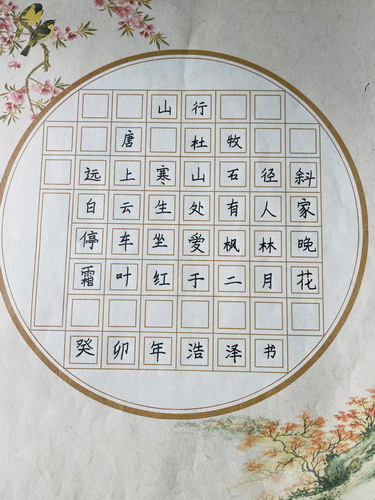 山行
唐 杜牧
远上寒山石径斜
白云生处有人家
停车坐爱枫林晚
霜叶红于二月花
癸卯年浩泽书